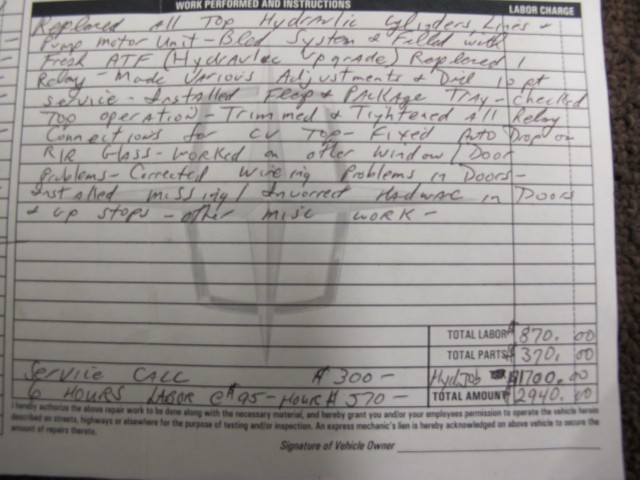 WORK PERFORMED AND INSTRUCTIONS LABOR CHARGE
Replaced All Top Hydraulic Cylinders Lines +
Pump motor Unit - Bled System & Filled with
Fresh ATF (Hydraulic upgrade) Replaced 1
Relay - Made Various Adjustments & Did 10 pt
service - Installed Flap & PACKAge TRAy - checked
Top operation - Trimmed & Tightened All Relay
Connections for CV Top - Fixed Auto Drop on
R/R Glass - Worked on other window / Door
Problems - Corrected wireing Problems in Doors -
Installed missing / Incorrect HARDWAC in Doors
+ up stops - other misc work -
TOTAL LABOR $ 870. 00
TOTAL PARTS $ 370. 00
Service CALL $ 300 - Hyd Job $ 1700. 00
6 HOURS LABOR @ $95 - HOUR $ 570 - TOTAL AMOUNT $ 2940. 00
I hereby authorize the above repair work to be done along with the necessary material, and hereby grant you and/or your employees permission to operate the vehicle herein
described on streets, highways or elsewhere for the purpose of testing and/or inspection. An express mechanic's lien is hereby acknowledged on above vehicle to secure the
amount of repairs thereto.
Signature of Vehicle Owner